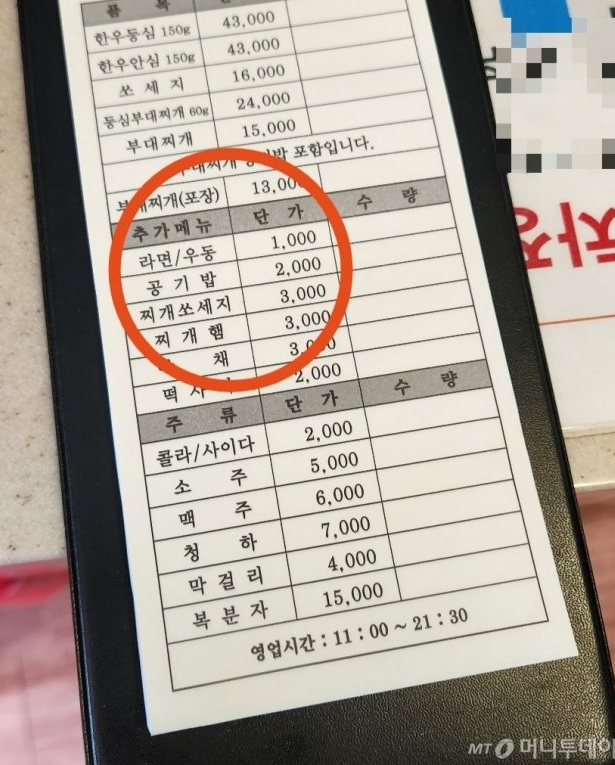 품 목
한우등심 150g 43,000
한우안심 150g 43,000
쏘 세 지 16,000
등심부대찌개 60g 24,000
부대찌개 15,000
포함입니다.
찌개(포장) 13,000
추가메뉴 단 가 수 량
라면/우동 1,000
공 기 밥 2,000
찌개쏘세지 3,000
찌 개 햄 3,000
채 3,000
떡 2,000
주 류 단 가 수 량
콜라/사이다 2,000
소 주 5,000
맥 주 6,000
청 하 7,000
막 걸 리 4,000
복 분 자 15,000
영업시간 : 11 : 00 ~ 21 : 30
MT 머니투데이